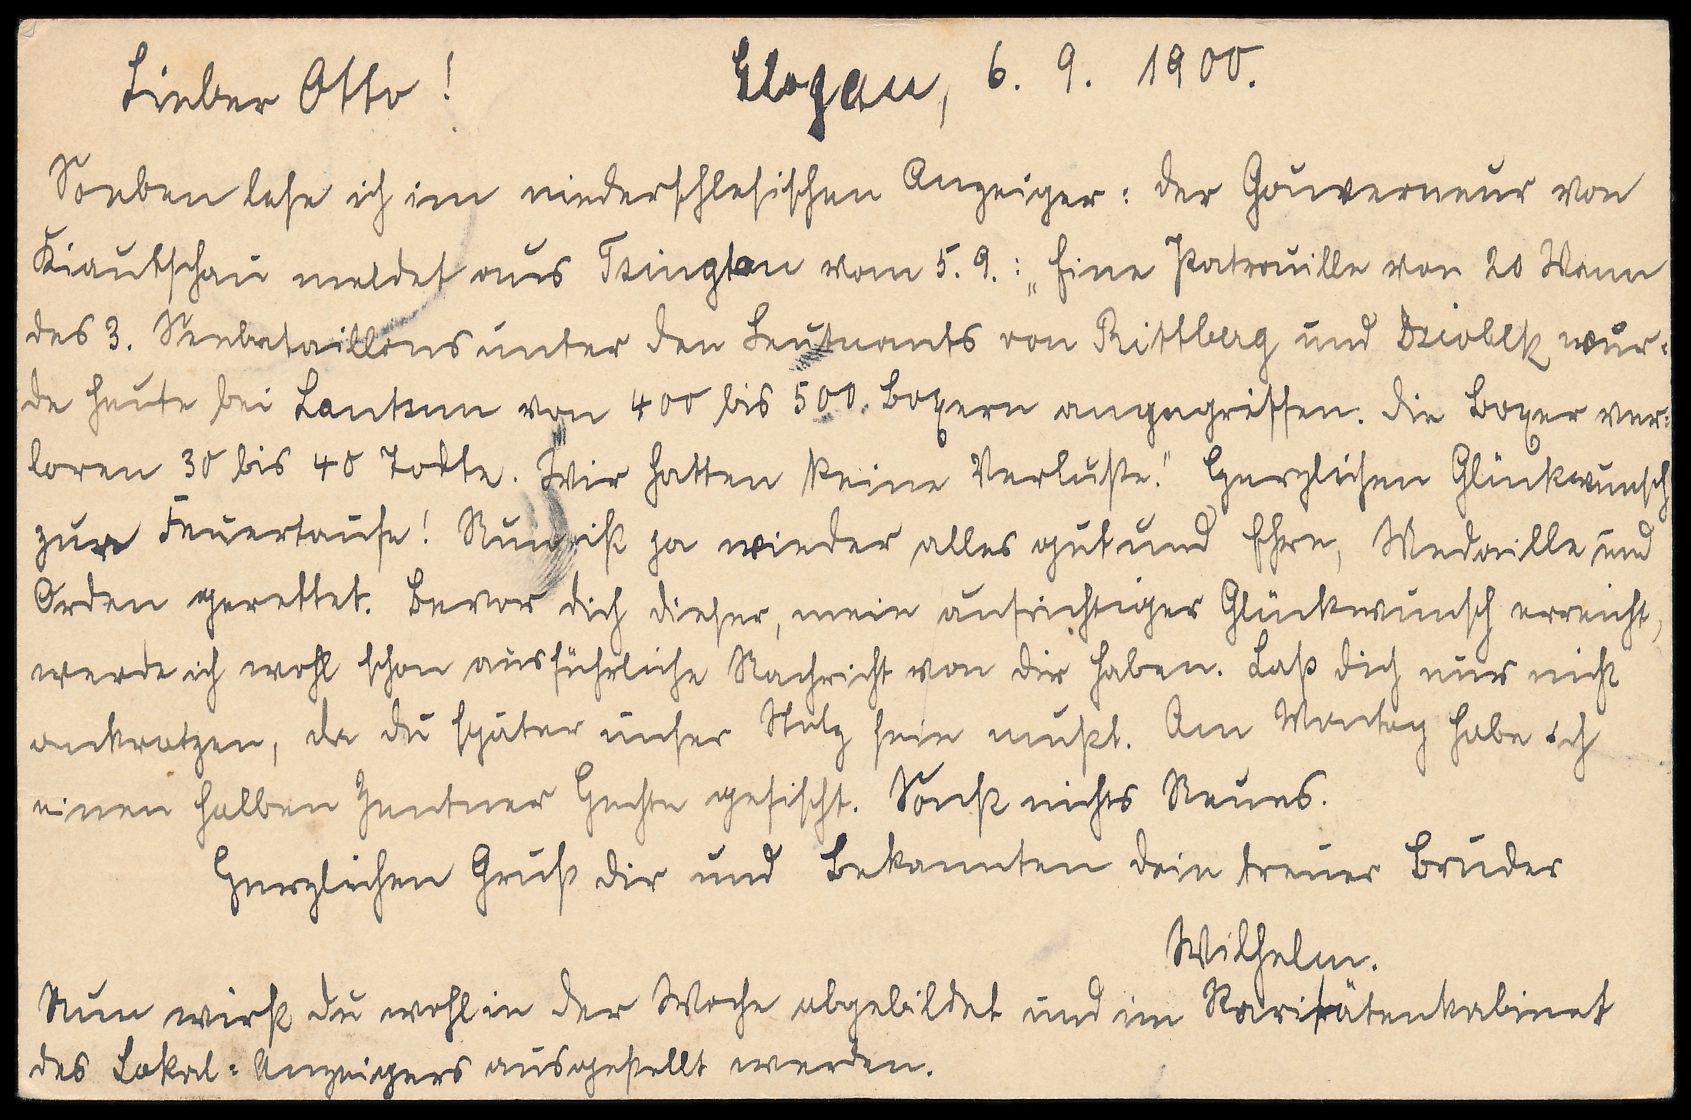 Lieber Otto! Glogau, 6. 9. 1900.
Soeben lese ich im niederschlesischen Anzeiger: der Gouverneur von
Kiautschau meldet aus Tsingtau vom 5. 9.: „Eine Patrouille von 20 Mann
des 3. Seebataillons unter den Leutnants von Rittberg und Dziobek wur-
de heute bei Lantsun von 400 bis 500. Boxern angegriffen. Die Boxer ver-
loren 30 bis 40 Todte. Wir hatten keine Verluste." Herzlichen Glückwunsch
zur Feuertaufe! Nun ist ja wieder alles gut und Ehre, Medaille und
Orden gerettet. Bevor dich dieser, mein aufrichtiger Glückwunsch erreicht,
werde ich wohl schon ausführliche Nachricht von dir haben. Laß dich nur nicht
ankratzen, da du später unser Stolz sein mußt. Am Montag habe ich
einen halben Zentner Hechte gefischt. Sonst nichts Neues.
Herzlichen Gruß dir und Bekannten dein treuer Bruder
Wilhelm.
Nun wirst du wohl in der Woche abgebildet und im Raritätenkabinet
des Lokal-Anzeigers ausgestellt werden.